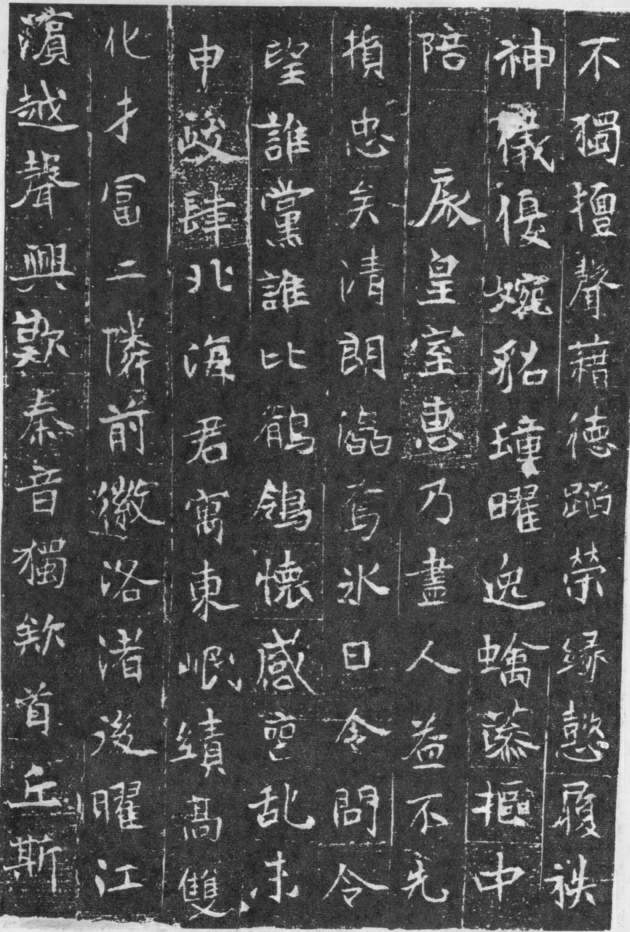 不獨擅聲藉徳蹈榮緣懿履袟
神儀優婉貂璫曜逸蟬樞中
陪扆皇室惠乃盡人益不先
損忠矣清朗焉氷日令問令
望誰黨誰比鶺鴒懐感乱未
申峻肆北海君寓東岷績高雙
化才冨二隣前徽洛渚後曜江
濵越聲興歎秦音獨欵首丘斯